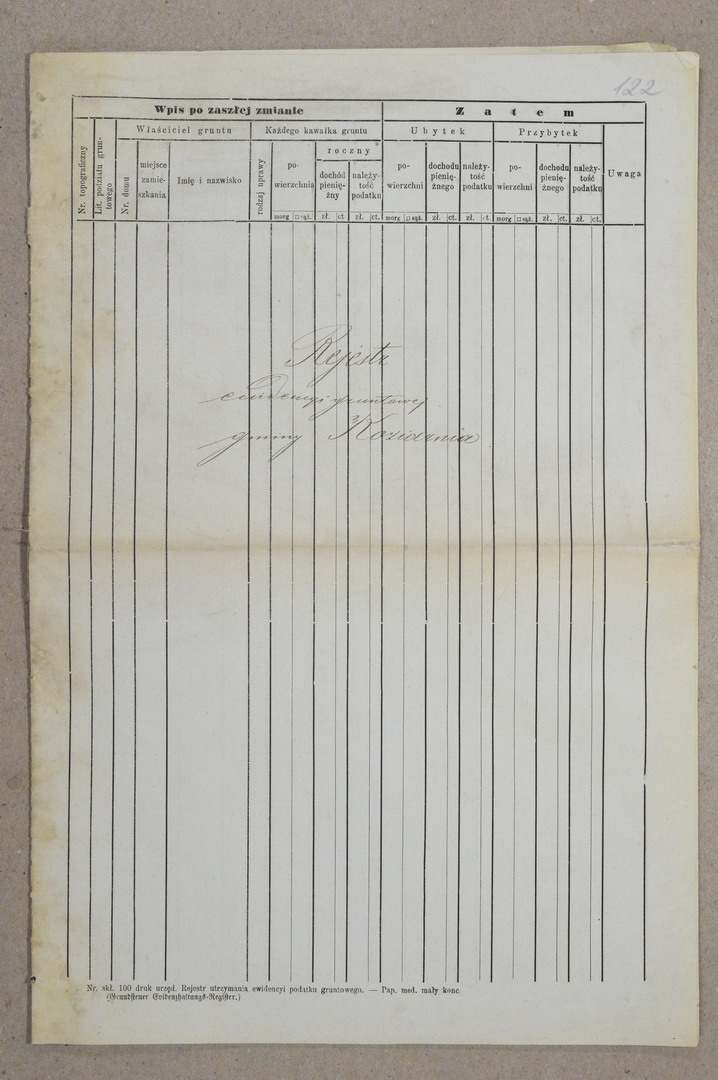 122
Wpis po zaszłej zmianie
Zatem
Nr. topograficzny
Lit. podziału grun-
towego
Właściciel gruntu
Każdego kawałka gruntu
Ubytek
Przybytek
Uwaga
Nr. domu
miejsce
zamie-
szkania
Imię i nazwisko
rodzaj uprawy
po-
wierzchnia
roczny
dochód
pienię-
żny
należy-
tość
podatku
po-
wierzchni
dochodu
pienię-
żnego
należy-
tość
podatku
po-
wierzchni
dochodu
pienię-
żnego
należy-
tość
podatku
morg □ sąż. zł. ct. zł. ct. morg □ sąż. zł. ct. zł. ct. morg □ sąż. zł. ct. zł. ct.
Rejestr
ewidencyi gruntowej
gminy Koziarnia
Nr. skł. 100 druk urzęd. Rejestr utrzymania ewidencyi podatku gruntowego. — Pap. med. mały konc.
(Grundsteuer Evidenzhaltungs-Register.)